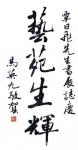 覃日飛先生書展誌慶
藝苑生輝
馬英九敬賀